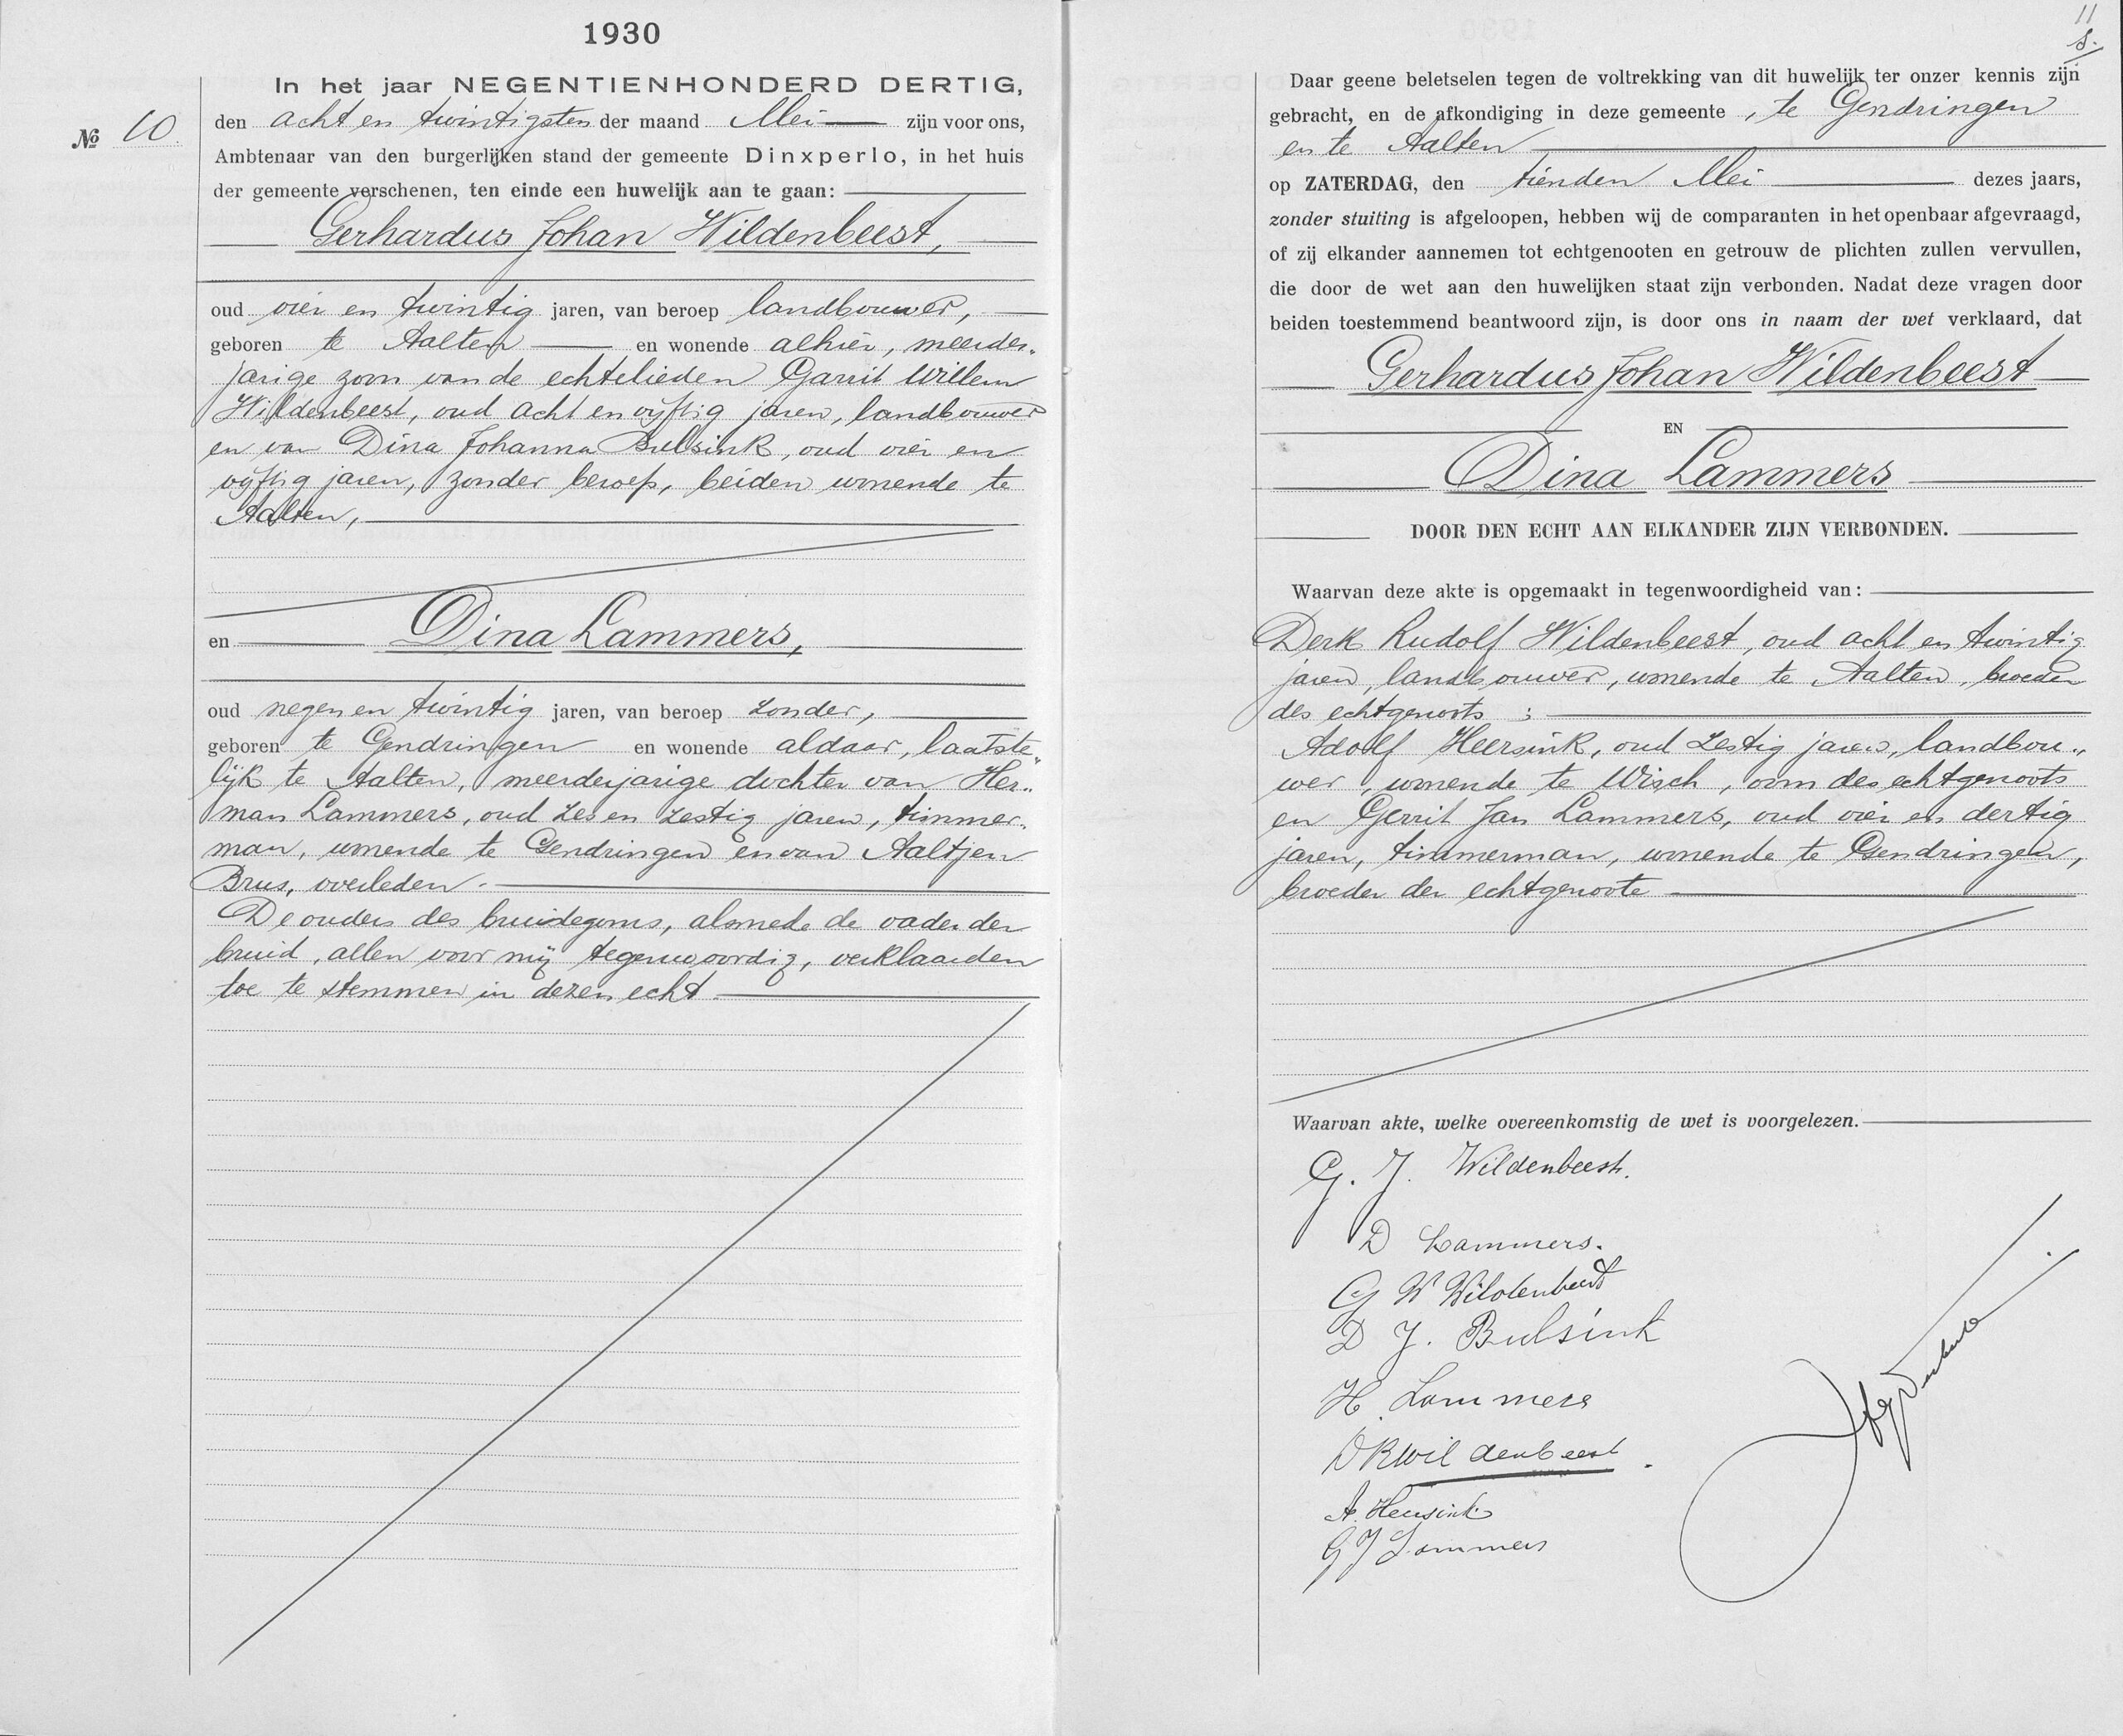 1930
In het jaar NEGENTIENHONDERD DERTIG,
den acht en twintigsten der maand Mei zijn voor ons,
No 10.
Ambtenaar van den burgerlijken stand der gemeente Dinxperlo, in het huis
der gemeente verschenen, ten einde een huwelijk aan te gaan:
Gerhardus Johan Wildenbeest,
oud vier en twintig jaren, van beroep landbouwer,
geboren te Aalten en wonende alhier, meerder-
jarige zoon van de echtelieden Garrit Willem
Wildenbeest, oud acht en vijftig jaren, landbouwer
en van Dina Johanna Bulsink, oud vier en
vijftig jaren, zonder beroep, beiden wonende te
Aalten,
en Dina Lammers,
oud negen en twintig jaren, van beroep zonder,
geboren te Gendringen en wonende aldaar, laatste-
lijk te Aalten, meerderjarige dochter van Her-
man Lammers, oud zes en zestig jaren, timmer-
man, wonende te Gendringen en van Aaltjen
Brus, overleden.
De ouders des bruidegoms, alsmede de vader der
bruid, allen voor mij tegenwoordig, verklaarden
toe te stemmen in dezen echt.
11
8.
Daar geene beletselen tegen de voltrekking van dit huwelijk ter onzer kennis zijn
gebracht, en de afkondiging in deze gemeente, te Gendringen
en te Aalten
op ZATERDAG, den tienden Mei dezes jaars,
zonder stuiting is afgeloopen, hebben wij de comparanten in het openbaar afgevraagd,
of zij elkander aannemen tot echtgenooten en getrouw de plichten zullen vervullen,
die door de wet aan den huwelijken staat zijn verbonden. Nadat deze vragen door
beiden toestemmend beantwoord zijn, is door ons in naam der wet verklaard, dat
Gerhardus Johan Wildenbeest
EN
Dina Lammers
DOOR DEN ECHT AAN ELKANDER ZIJN VERBONDEN.
Waarvan deze akte is opgemaakt in tegenwoordigheid van:
Derk Rudolf Wildenbeest, oud acht en twintig
jaren, landbouwer, wonende te Aalten, broeder
des echtgenoots ;
Adolf Heersink, oud zestig jaren, landbou-
wer, wonende te Wisch, oom des echtgenoots
en Gerrit Jan Lammers, oud vier en dertig
jaren, timmerman, wonende te Gendringen,
broeder der echtgenoote
Waarvan akte, welke overeenkomstig de wet is voorgelezen.
G. J. Wildenbeest.
D Lammers.
G W Wildenbeest
D J. Bulsink
H. Lammers
D R Wildenbeest.
A. Heersink
G J Lammers